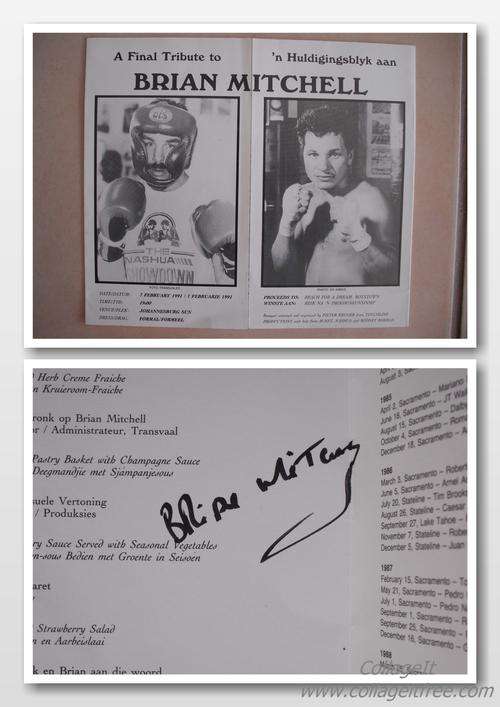 A Final Tribute to
'n Huldigingsblyk aan
BRIAN MITCHELL
THE
NASHUA
SHOWDOWN
DATE/DATUM: 7 FEBRUARY 1991 / 7 FEBRUARIE 1991
TIME/TYD: 19:00
VENUE/PLEK: JOHANNESBURG SUN
DRESS/DRAG: FORMAL/FORMEEL
PROCEEDS TO:
WINSTE AAN:
Herb Creme Fraiche
n Kruieroom-Fraiche
ronk op Brian Mitchell
or / Administrateur, Transvaal
Pastry Basket with Champagne Sauce
Deegmandjie met Sjampanjesous
suele Vertoning
/ Produksies
ry Sauce Served with Seasonal Vegetables
n-sous Bedien met Groente in Seisoen
aret
Strawberry Salad
n en Aarbeislaai
k en Brian aan die woord
Brian Mitchell
August 5,
1985
April 2, Sacramento – Mariano
June 18, Sacramento – JT
August 15, Sacramento –
October 4, Sacramento –
December 18, Sacramento –
1986
March 3, Sacramento – Robert
June 5, Sacramento –
July 20, Stateline – Tim
August 26, Stateline – Caesar
September 27, Lake Tahoe –
November 7, Stateline –
December 5, Stateline – Juan
1987
February 15, Sacramento –
May 21, Sacramento – Pedro
July 1, Sacramento – Pedro
September 1, Sacramento –
September 25, Sacramento
December 16, Sacramento –
1988
CollageIt
www.collageitfree.com